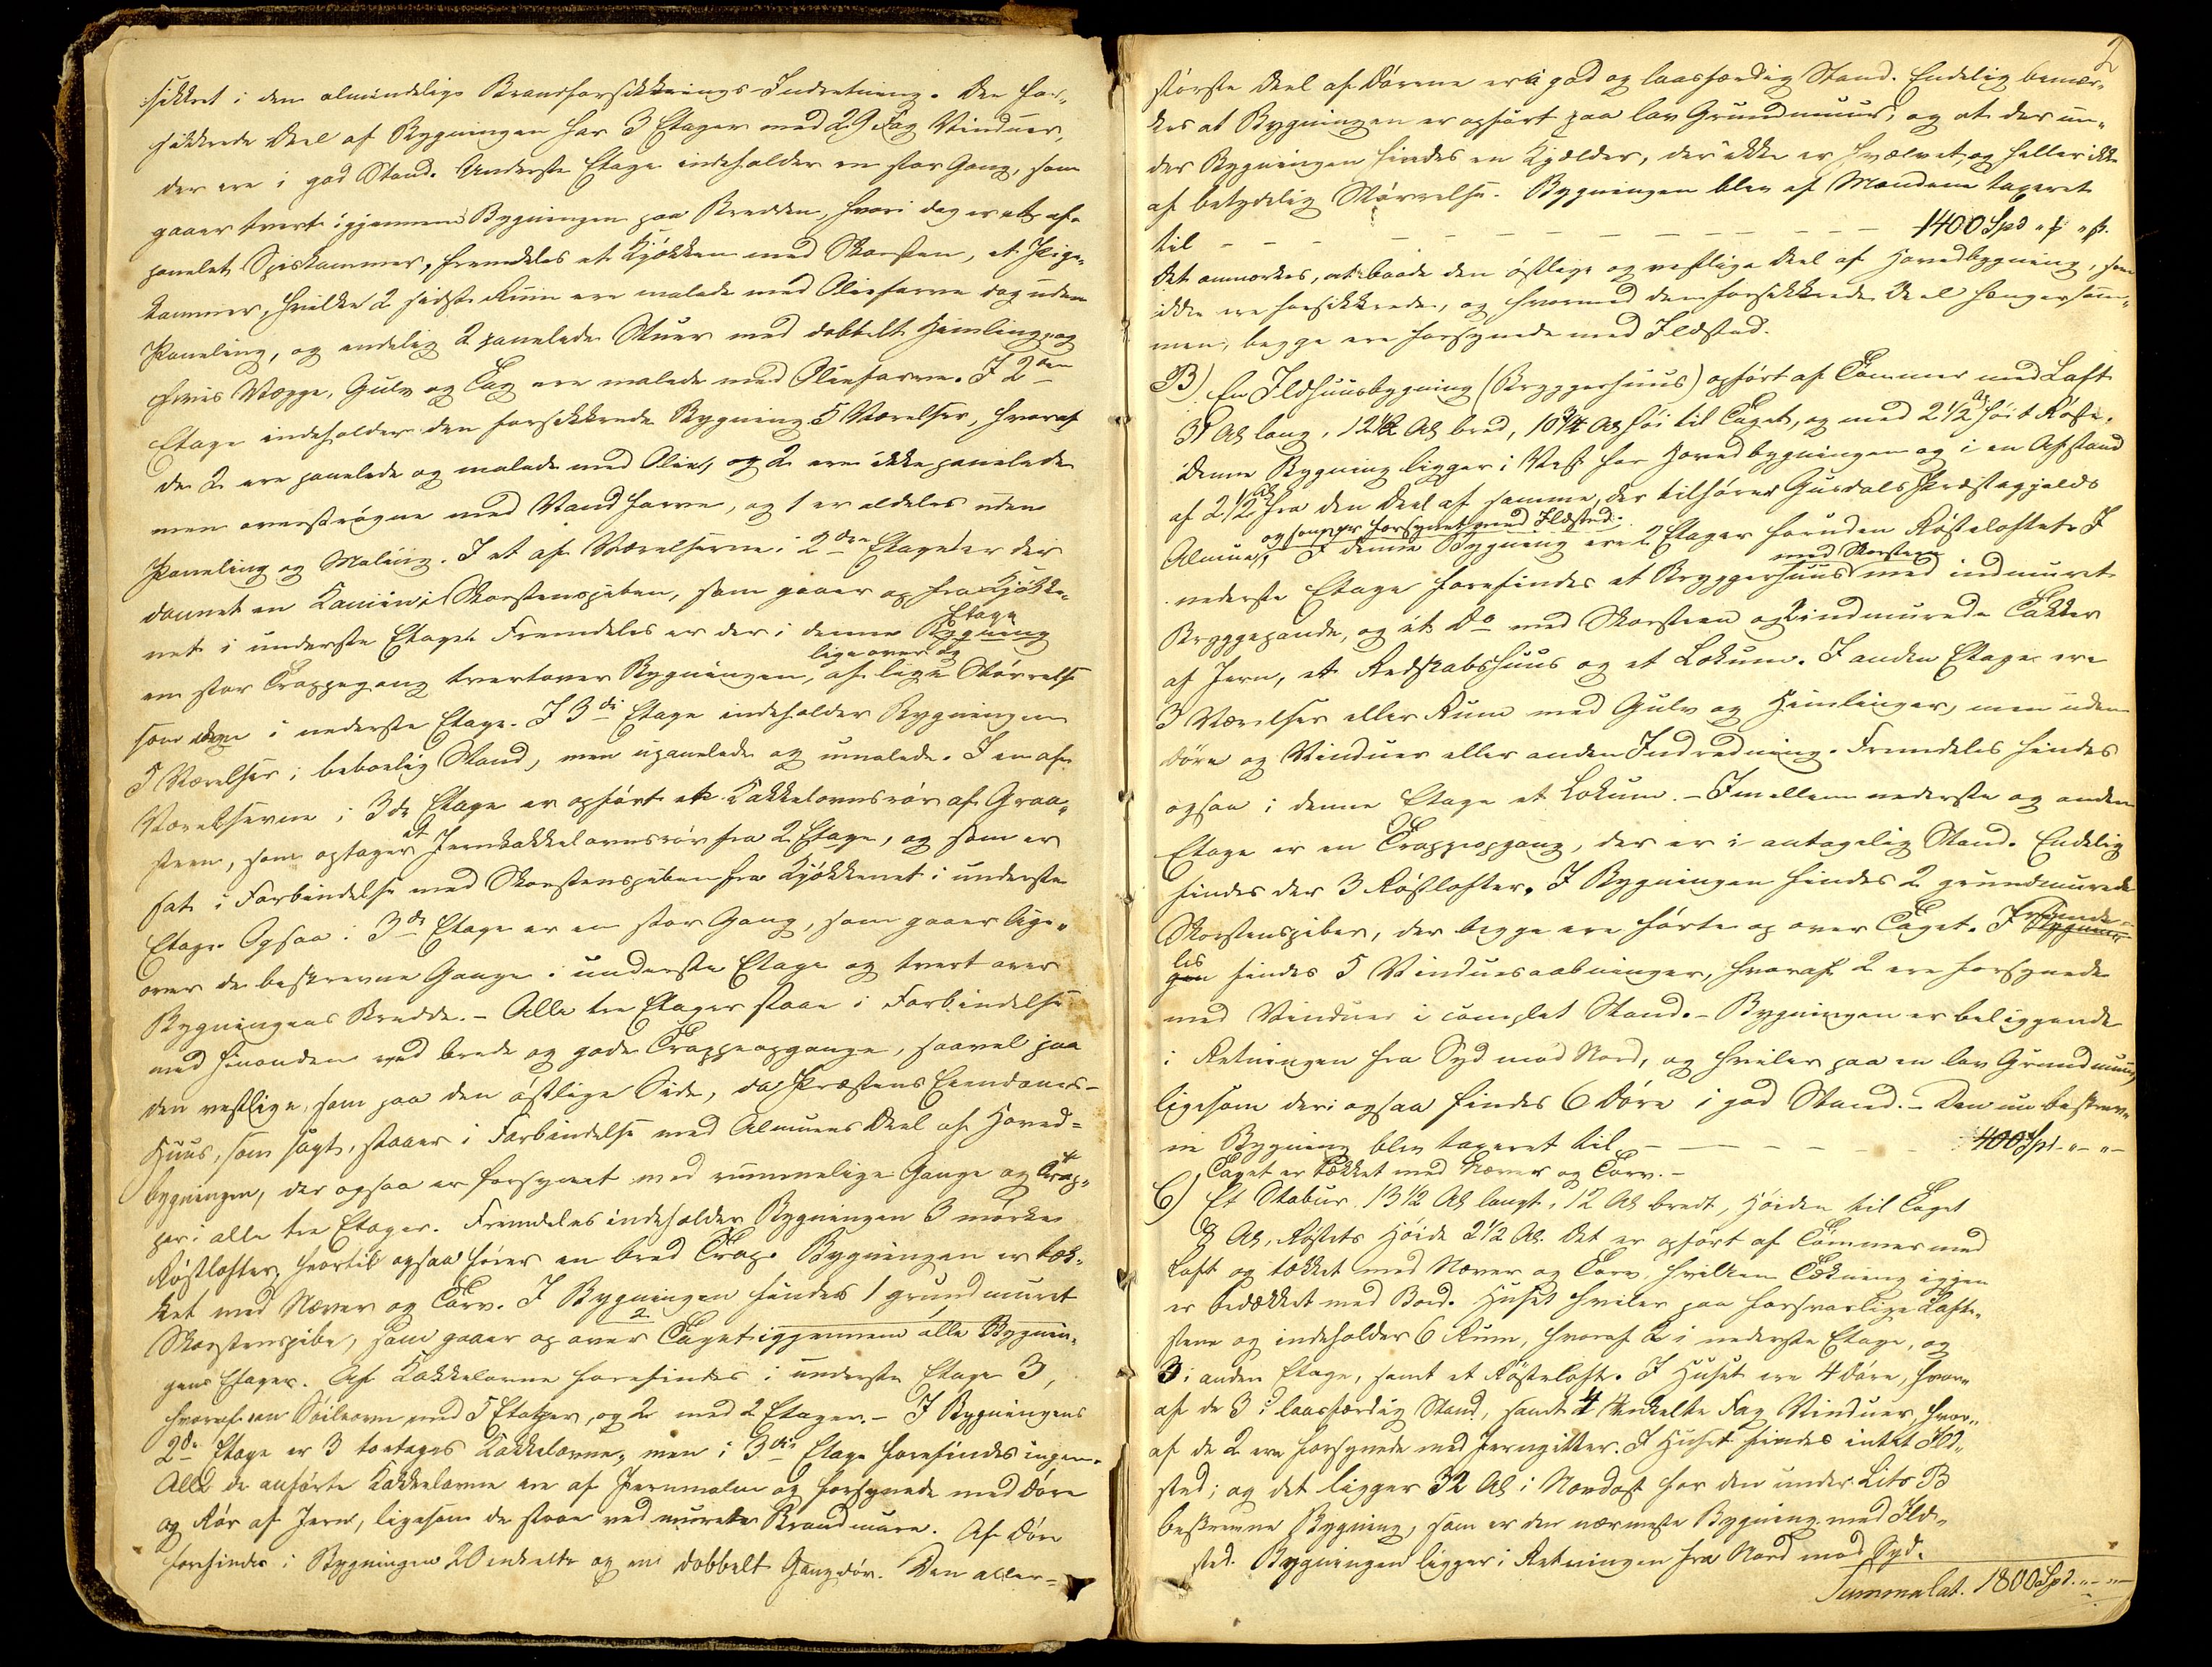 sikkret i den almindelige Brandforsikkrings-Indretning. Den for„
sikkrede Deel af Bygningen har 3 Etager med 29 Fag Vinduer,
der ere i god Stand. Underste Etage indeholder en stor Gang, som
gaaer tvert igjennem Bygningen paa Bredden, hvori dog er et af„
panelet Spiskammer, fremdeles et Kjøkken med Skorsten, et Pige„
kammer, hvilke 2 sidste Rum ere malede med Oliefarve dog uden
Paneling, og endelig 2 panelede Stuer med dobbelt Himling og
hvis Vægge, Gulv og Tag ere malede med Oliefarve. I 2den
Etage indeholder den forsikkrede Bygning 5 Værelser, hvoraf
de 2 ere panelede og malede med Olie, og 2 ere ikke panelede
men overstrøgne med Vandfarve, og 1 er aldeles uden
Paneling og Maling. I et af Værelserne i 2den Etage er der
dannet en Kamin i Skorstenspiben, som gaaer op fra Kjøkke„
net i underste Etage. Fremdeles er der i denne Bygning Etage
en stor Trappegang tvertover Bygningen, lige over og af lige Størrelse
som den i nederste Etage. I 3die Etage indeholder Bygningen
5 Værelser i beboelig Stand, men upanelede og umalede. I en af
Værelserne i 3de Etage er opført et Kakkelovnsrør af Graa„
steen, som optager et Jernkakkelovnsrør fra 2 Etage, og som er
sat i Forbindelse med Skorstenspiben fra Kjøkkenet i underste
Etage. Ogsaa i 3de Etage er en stor Gang, som gaaer lige„
over de beskrevne Gange i underste Etage og tvert over
Bygningens Bredde. - Alle tre Etager staae i Forbindelse
med hinanden ved brede og gode Trappeopgange, saavel paa
den vestlige, som paa den østlige Side, da Præstens Eiendoms-
Huus, som sagt, staaer i Forbindelse med Almuens Deel af Hoved=
bygningen, der ogsaa er forsynet med rummelige Gange og Trap„
per i alle tre Etager. Fremdeles indeholder Bygningen 3 mørke
Røstlofter, hvortil ogsaa hører en bred Trap. Bygningen er tæk„
ket med Næver og Törv. I Bygningen findes 1 grundmuret
Skorstenspibe, som gaaer op over Taget igjennem alle 2 Bygnin„
gens Etager. Af Kakkelovne forefindes i underste Etage 3,
hvoraf en Søileovn med 5 Etager, og 2 med 2 Etager. - I Bygningens
2de Etage er 3 toetages Kakkelovne, men i 3die Etage forefindes ingen.
Alle de anførte Kakkelovne ere af Jernmalm og forsynede med Døre
og Rør af Jern, ligesom de staae ved murede Brandmure. Af Døre
forefindes i Bygningen 20 enkelte og en dobbelt Gangdør. Den aller-
2
største Deel af Dørene er i god og laasfærdig Stand. Endelig bemær„
kes at Bygningen er opført paa lav Grundmuur, og at der un„
der Bygningen findes en Kjælder, der ikke er hvælvet og heller ikke
af betydelig Størrelse. Bygningen blev af Mændene taxeret
til - - - - - - - - - - 1400 Spd „ß „ß.
Det anmærkes, at baade den østlige og vestlige Deel af Hovedbygning, som
ikke ere forsikkrede, og hvormed den forsikkrede Deel hænger sam„
men, begge ere forsynede med Ildsted.
B) En Ildhuusbygning (Bryggerhuus) opført af Tømmer med Laft
31 Al lang, 12½ Al bred, 10¾ Al høi til Taget, og med 2½ Al høit Røste.
Denne Bygning ligger i Vest for Hovedbygningen og i en Afstand
af 2½ Al fra den Deel af samme, der tilhører Gusdals Præstegjælds
Almue, og som er forsynet med Ildsted. I denne Bygning ere 2 Etager foruden Røsteloftet. I
nederste Etage forefindes et Bryggerhuus med Skorsteen med indmuret
Bryggepande, og et Do med Skorsteen og 2 indmurede Takker
af Jern, et Redskabshuus og et Lokum. I anden Etage ere
3 Værelser eller Rum med Gulv og Himlinger, men uden
Døre og Vinduer eller anden Indredning. Fremdeles findes
ogsaa i denne Etage et Lokum. - Imellem nederste og anden
Etage er en Trappeopgang, der er i antagelig Stand. Endelig
findes der 3 Røstlofter. I Bygningen findes 2 grundmurede
Skorstenspiber, der begge ere førte op over Taget. I Bygnin Fremde„
gen les findes 5 Vinduesaabninger, hvoraf 2 ere forsynede
med Vinduer i complet Stand. - Bygningen er beliggende
i Retningen fra Syd mod Nord, og hviler paa en lav Grundmuur,
ligesom deri ogsaa findes 6 Døre i god Stand. - Den nu beskrev„
ne Bygning blev taxeret til - - - - - 400 Spd. „- „-
Taget er tækket med Næver og Törv. -
C) Et Stabur 13½ Al langt, 12 Al bredt, Høiden til Taget
8 Al, Røstets Høide 2½ Al. Det er opført af Tømmer med
Laft og tækket med Næver og Törv, hvilken Tækning igjen
er bedækket med Bord. Huset hviler paa forsvarlige Laft„
stene og indeholder 6 Rum, hvoraf 2 i nederste Etage, og
3 i anden Etage, samt et Røsteloft. I Huset ere 4 Døre, hvor„
af de 3 i laasfærdig Stand, samt 4 enkelte Fag Vinduer, hvor„
af de 2 ere forsynede med Jerngitter. I Huset findes intet Ild„
sted; og det ligger 32 Al i Nordost for den under Litr. B
beskrevne Bygning, som er den nærmeste Bygning med Ild„
sted. Bygningen ligger i Retningen fra Nord mod Syd.
Summa lat. 1800 Spd. „- „-